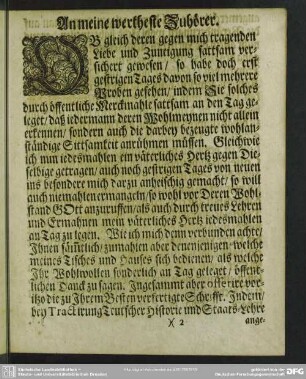 An meine wertheste Zuhörer.
OB gleich deren gegen mich tragenden
Liebe und Zuneigung sattsam ver-
sichert gewesen / so habe doch erst
gestrigen Tages davon so viel mehrere
Proben gesehen / indem Sie solches
durch öffentliche Merckmahle sattsam an den Tag ge-
leget / daß iedermann deren Wohlmeynen nicht allein
erkennen / sondern auch die darbey bezeugte wohlan-
ständige Sittsamkeit anrühmen müssen. Gleichwie
ich nun iedesmahlen ein väterliches Hertz gegen Die-
selbige getragen / auch noch gestriges Tages von neuen
uns besondere mich darzu anheischig gemacht / so will
auch niemahlen ermangeln / so wohl vor Deren Wohl-
stand GOtt anzuruffen / als auch durch treues Lehren
und Ermahnen mein väterliches Hertz iedesmahlen
an Tag zu legen. Wie ich mich denn verbunden achte /
Ihnen sämtlich / zumahlen aber denenjenigen / welche
meines Tisches und Hauses sich bedienen / als welche
Ihr Wohlwollen sonderlich an Tag geleget / öffent-
lichen Danck zu sagen. Ingesammt aber offerire vor-
itzo die zu Ihrem Besten verfertigte Schrifft. Indem /
bey Tractirung Teutscher Historie und Staats-Lehre
)( 2
ange-